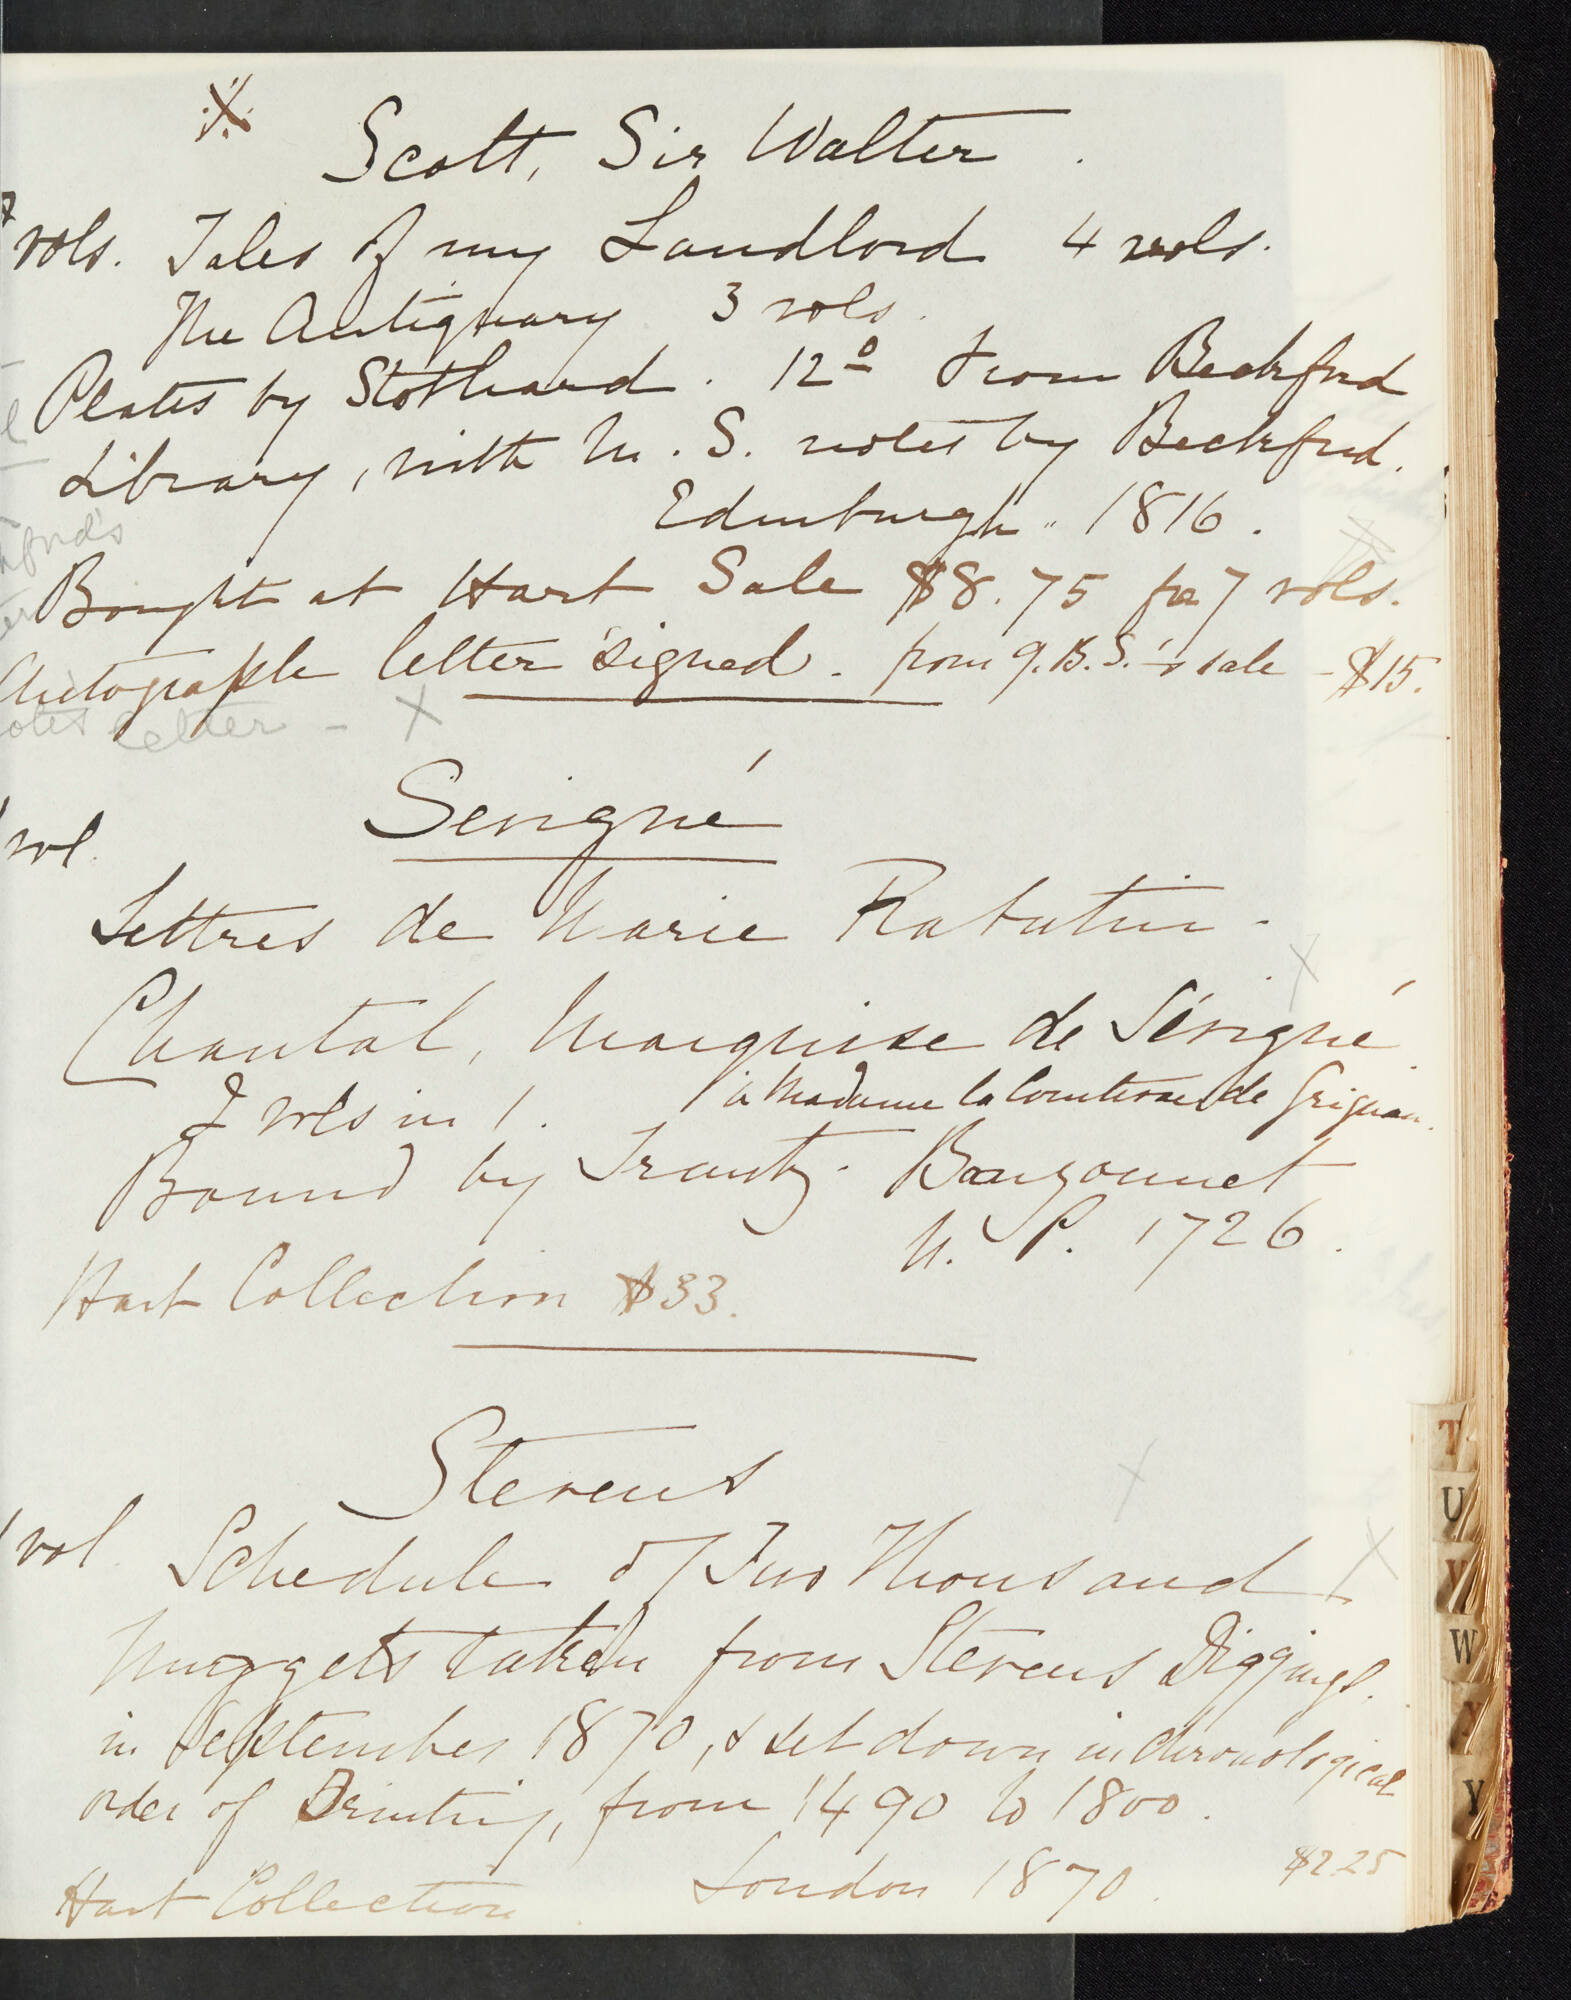 Scott, Sir Walter.
7 vols. Tales of my Landlord 4 vols.
The Antiquary 3 vols.
Plates by Stothard. 12º From Beckford
Library, with M.S. notes by Beckford.
Edinburgh 1816.
Bought at Hart Sale $8.75 for 7 vols.
Autograph letter signed. from J.B.S.'s sale - $15.
letter - X
Sevigné
1 vol.
Lettres de Marie Rabutin-
Chantal, Marquise de Sévigné
à Madame la Comtesse de Grignan.
2 vols in 1.
Bound by Trautz-Bauzonnet
N. P. 1726.
Hart Collection $33.
Stevens
1 vol. Schedule of Two Thousand
Nuggets taken from Stevens Diggings.
in September 1870, & set down in chronological
order of Printing, from 1490 to 1800.
London 1870. $2.25
Hart Collection
T
U
V
W
X
Y